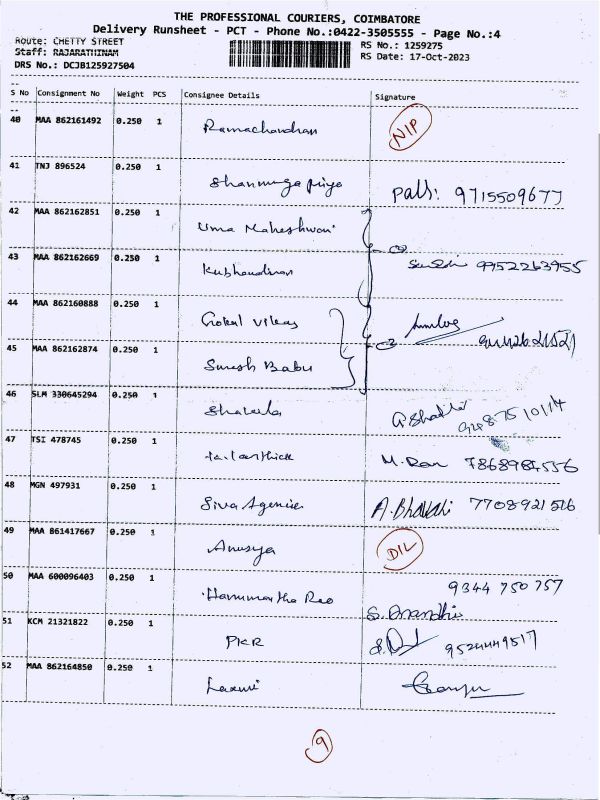 THE PROFESSIONAL COURIERS, COIMBATORE
Delivery Runsheet - PCT - Phone No.:0422-3505555 - Page No.:4
Route: CHETTY STREET
RS No.: 1259275
Staff: RAJARATHINAM
RS Date: 17-Oct-2023
DRS No.: DCJB125927504
S No Consignment No Weight PCS Consignee Details Signature
40 MAA 862161492 0.250 1 Ramachandran NIP
41 TNJ 896524 0.250 1 Shanmuga priya 9715509677
42 MAA 862162851 0.250 1 Uma Maheshwari
43 MAA 862162669 0.250 1 9952263955
44 MAA 862160888 0.250 1 Gokul vikas
45 MAA 862162874 0.250 1 Suresh Babu
46 SLM 330645294 0.250 1
47 TSI 478745 0.250 1 M. Ram 7868984556
48 MGN 497931 0.250 1 Siva Agencies A. Bhavani 7708921516
49 MAA 861417667 0.250 1 Anusya DIL
50 MAA 600096403 0.250 1 Hanumantha Rao 9344 750 757
S. Anandhi
51 KCM 21321822 0.250 1 PKR 9524449517
52 MAA 862164850 0.250 1 Laxmi
9